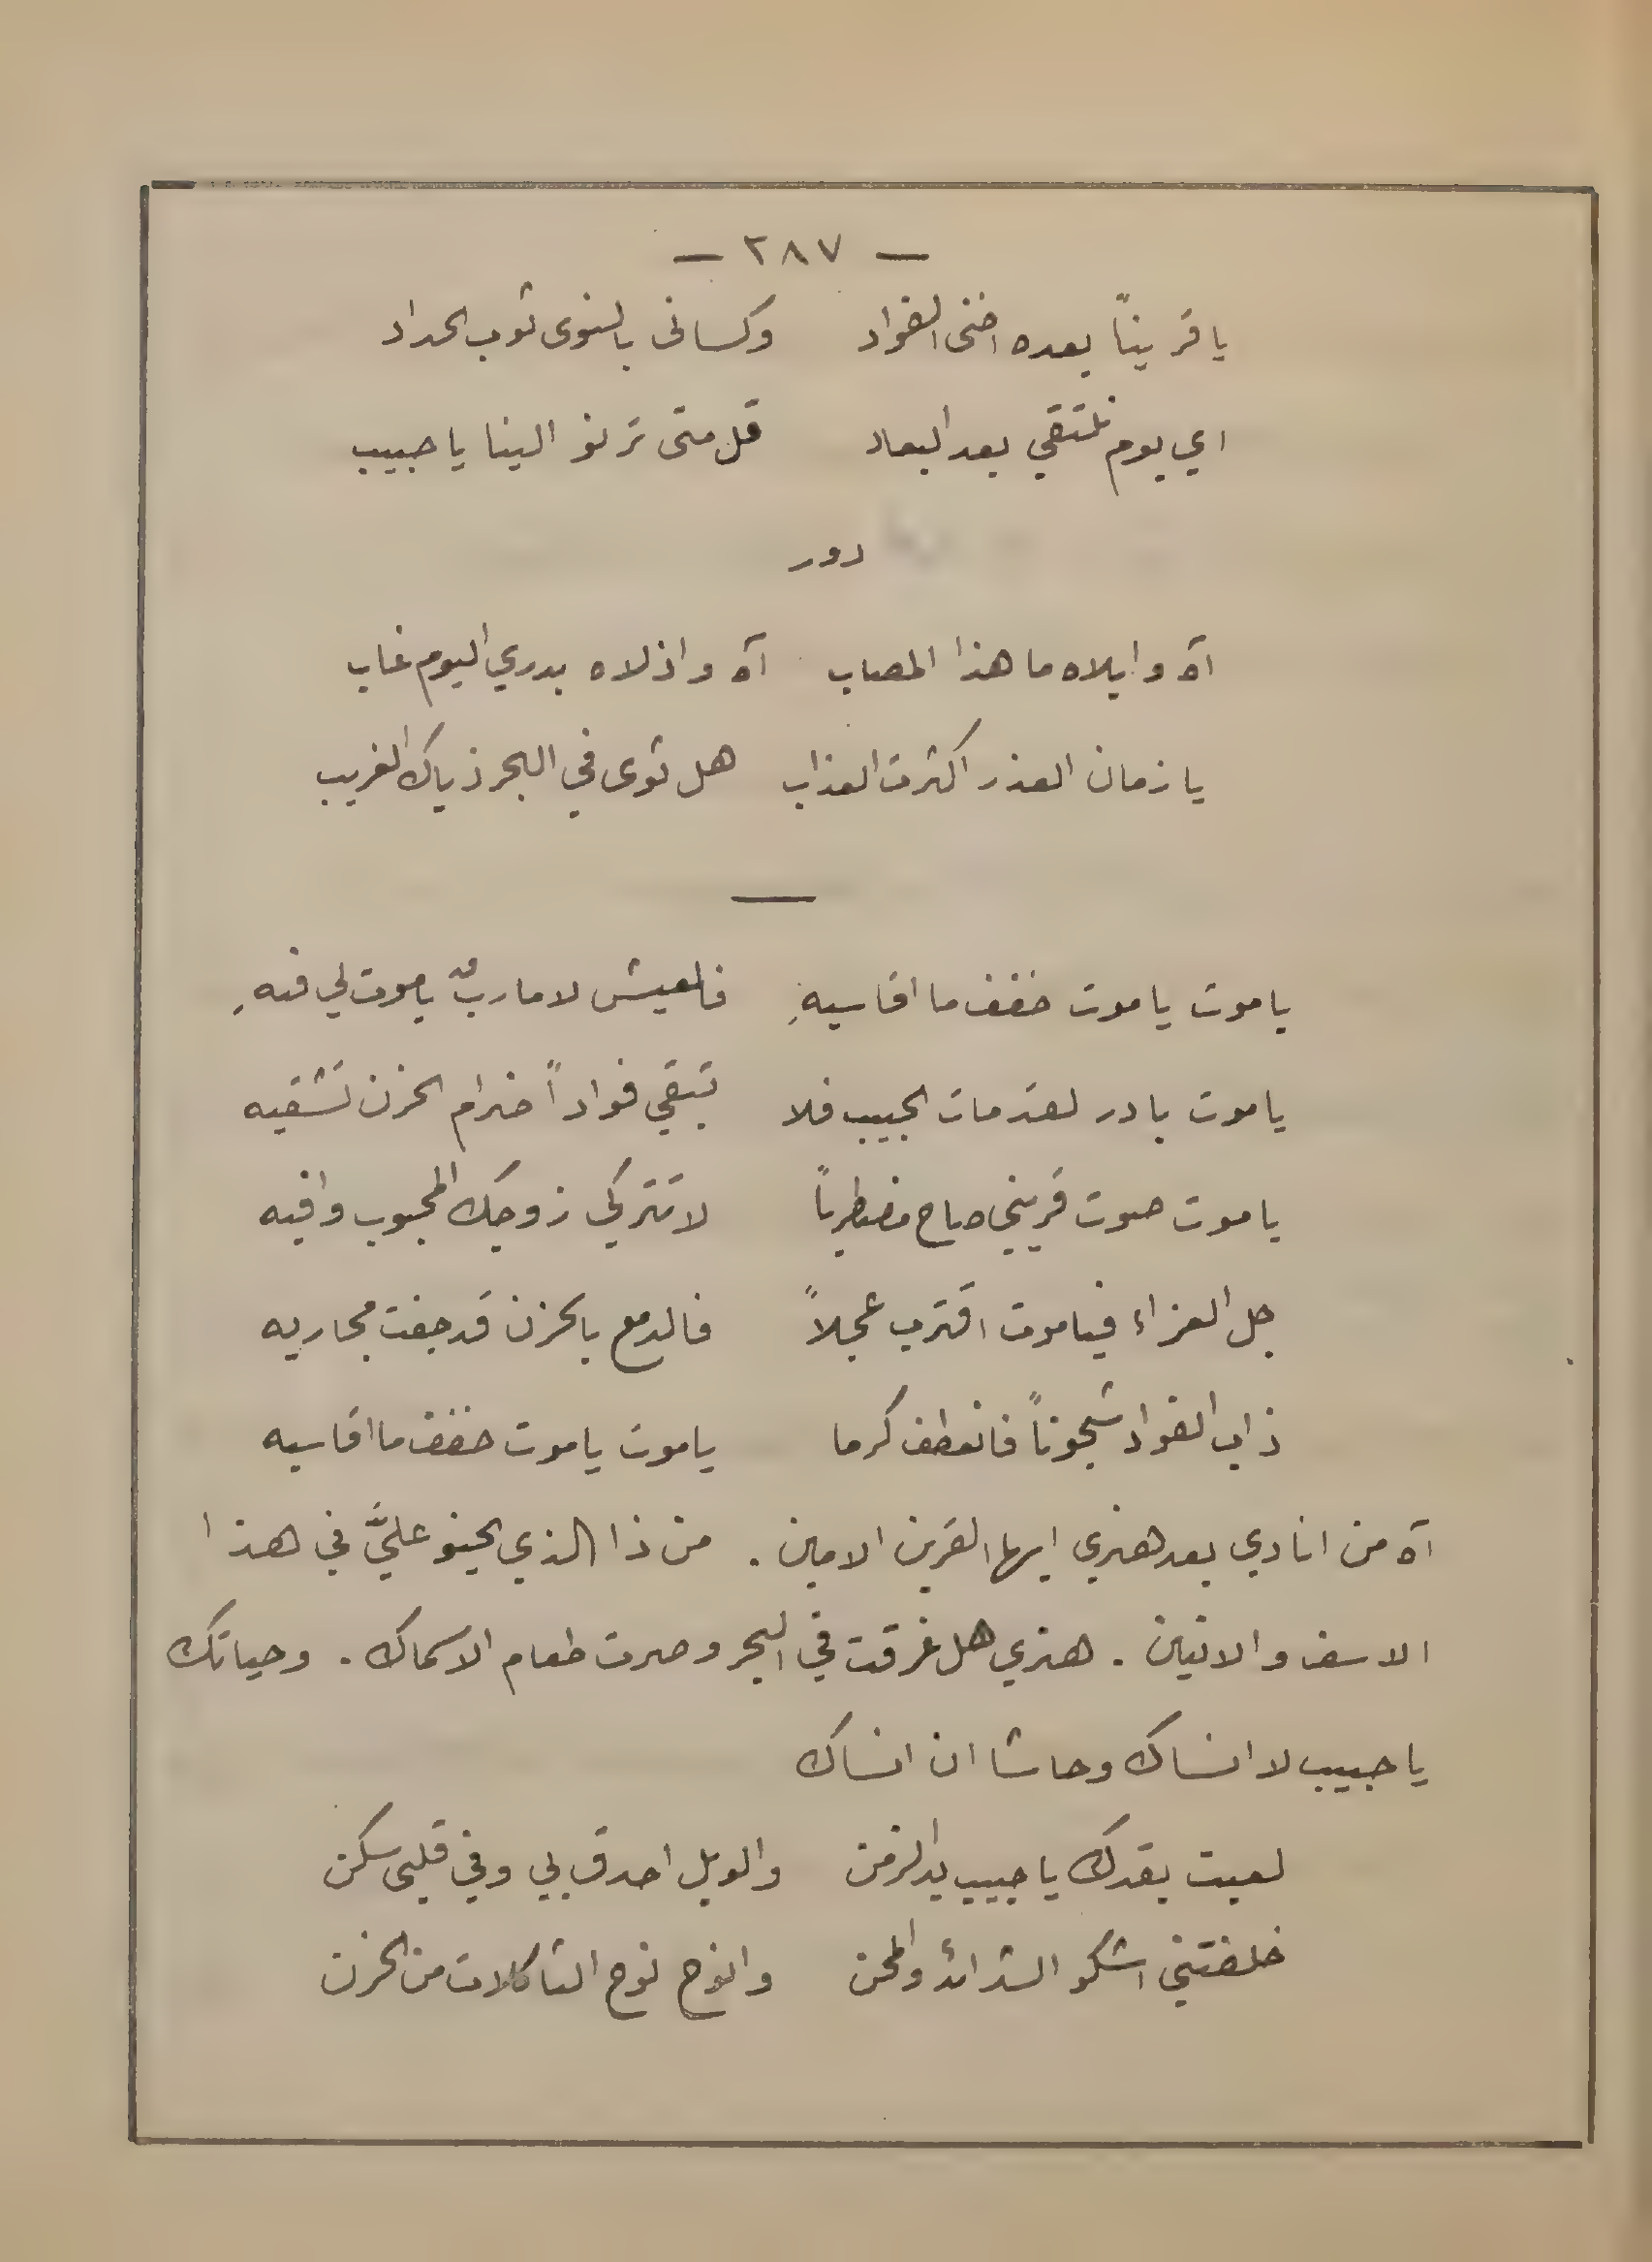 — ٢٨٧ —
يا قريناً بعده اضنى الفؤاد وكسانى بالنوى ثوب الحداد
اي يوم نلتقي بعد البعاد قل متى ترنو الينا يا حبيب
دور
آه وايلاه ما هذا المصاب آه واذلاه بدري اليوم غاب
يا زمان الغدر اكثرت العذاب هل ثوى في البحر ذياك الغريب
يا موت يا موت خفف ما اقاسيهِ فالعيش لا مارب يا موت لي فيهِ
يا موت بادر لقد مات الحبيب فلا تبقي فواداً ضرام الحزن تشقيه
يا موت صوت قريني صاح مضطرباً لا تتركي زوجك المحبوب وافيه
جل العزاء فيا موت اقترب عجلاً فالدمع بالحزن قد جفت مجاريه
ذاب الفواد شجوناً فانعطف كرما يا موت يا موت خفف ما اقاسيه
آه من انادي بعد هنري ايها القرين الامين . من ذا الذي يحنو عليَّ في هذا
الاسف والانين . هنري هل غرقت في البحر وصرت طعام الاسماك . وحياتك
يا حبيب لا انساك وحاشا ان انساك
لعبت بقدك يا حبيب يد الزمن والويل احدق بي وفي قلبى سكن
خلفتني اشكو الشدائد والمحن وانوح نوح الثاكلات من الحزن